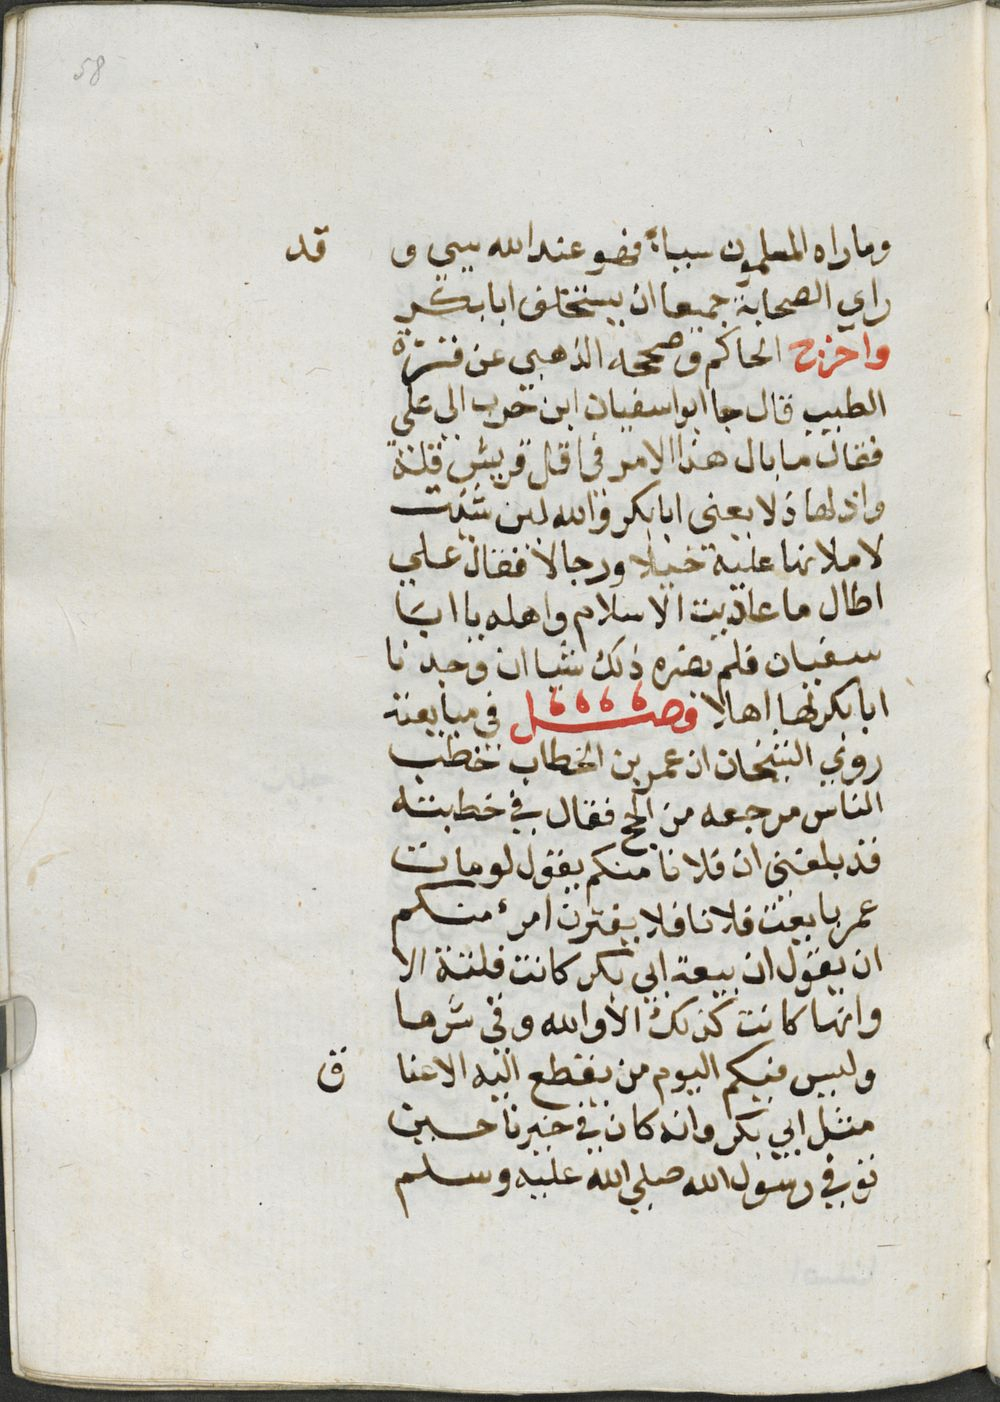 58
وماراه المسلمون سيياً فهو عند الله سيي و قد
راي الصحابة جميعا ان يستخلف ابا بكر
واخرج الحاكم وصححه الذهبي عن مرة
الطبيب قال جا ابوا سفيان ابن حرب الى علي
فقال ما بال هذا الامر في اقل قريش قلة
واذلها ذلا يعني ابا بكر والله لين شئت
لاملانها عليه خيلا ورجالا فقال علي
اطال ما عاديت الاسلام واهله يا ابا
سفيان فلم يضره ذلك شيا ان وجدنا
ابا بكر لها اهلا فصل في مبايعته
روي الشيخان ان عمر بن الخطاب خطب
الناس مرجعه من الحج فقال في خطبته
قد بلغني ان فلانا منكم يقول لو مات
عمر بايعت فلانا فلا يغترن امرء منكم
ان يقول ان بيعة ابي بكر كانت فلتة الا
وانها كانت كذلك الا والله وقي شرها
وليس فيكم اليوم من يقطع اليه الاعنا ق
مثل ابي بكر وانه كان في خيرنا حين
توفي رسول الله صلي الله عليه وسلم